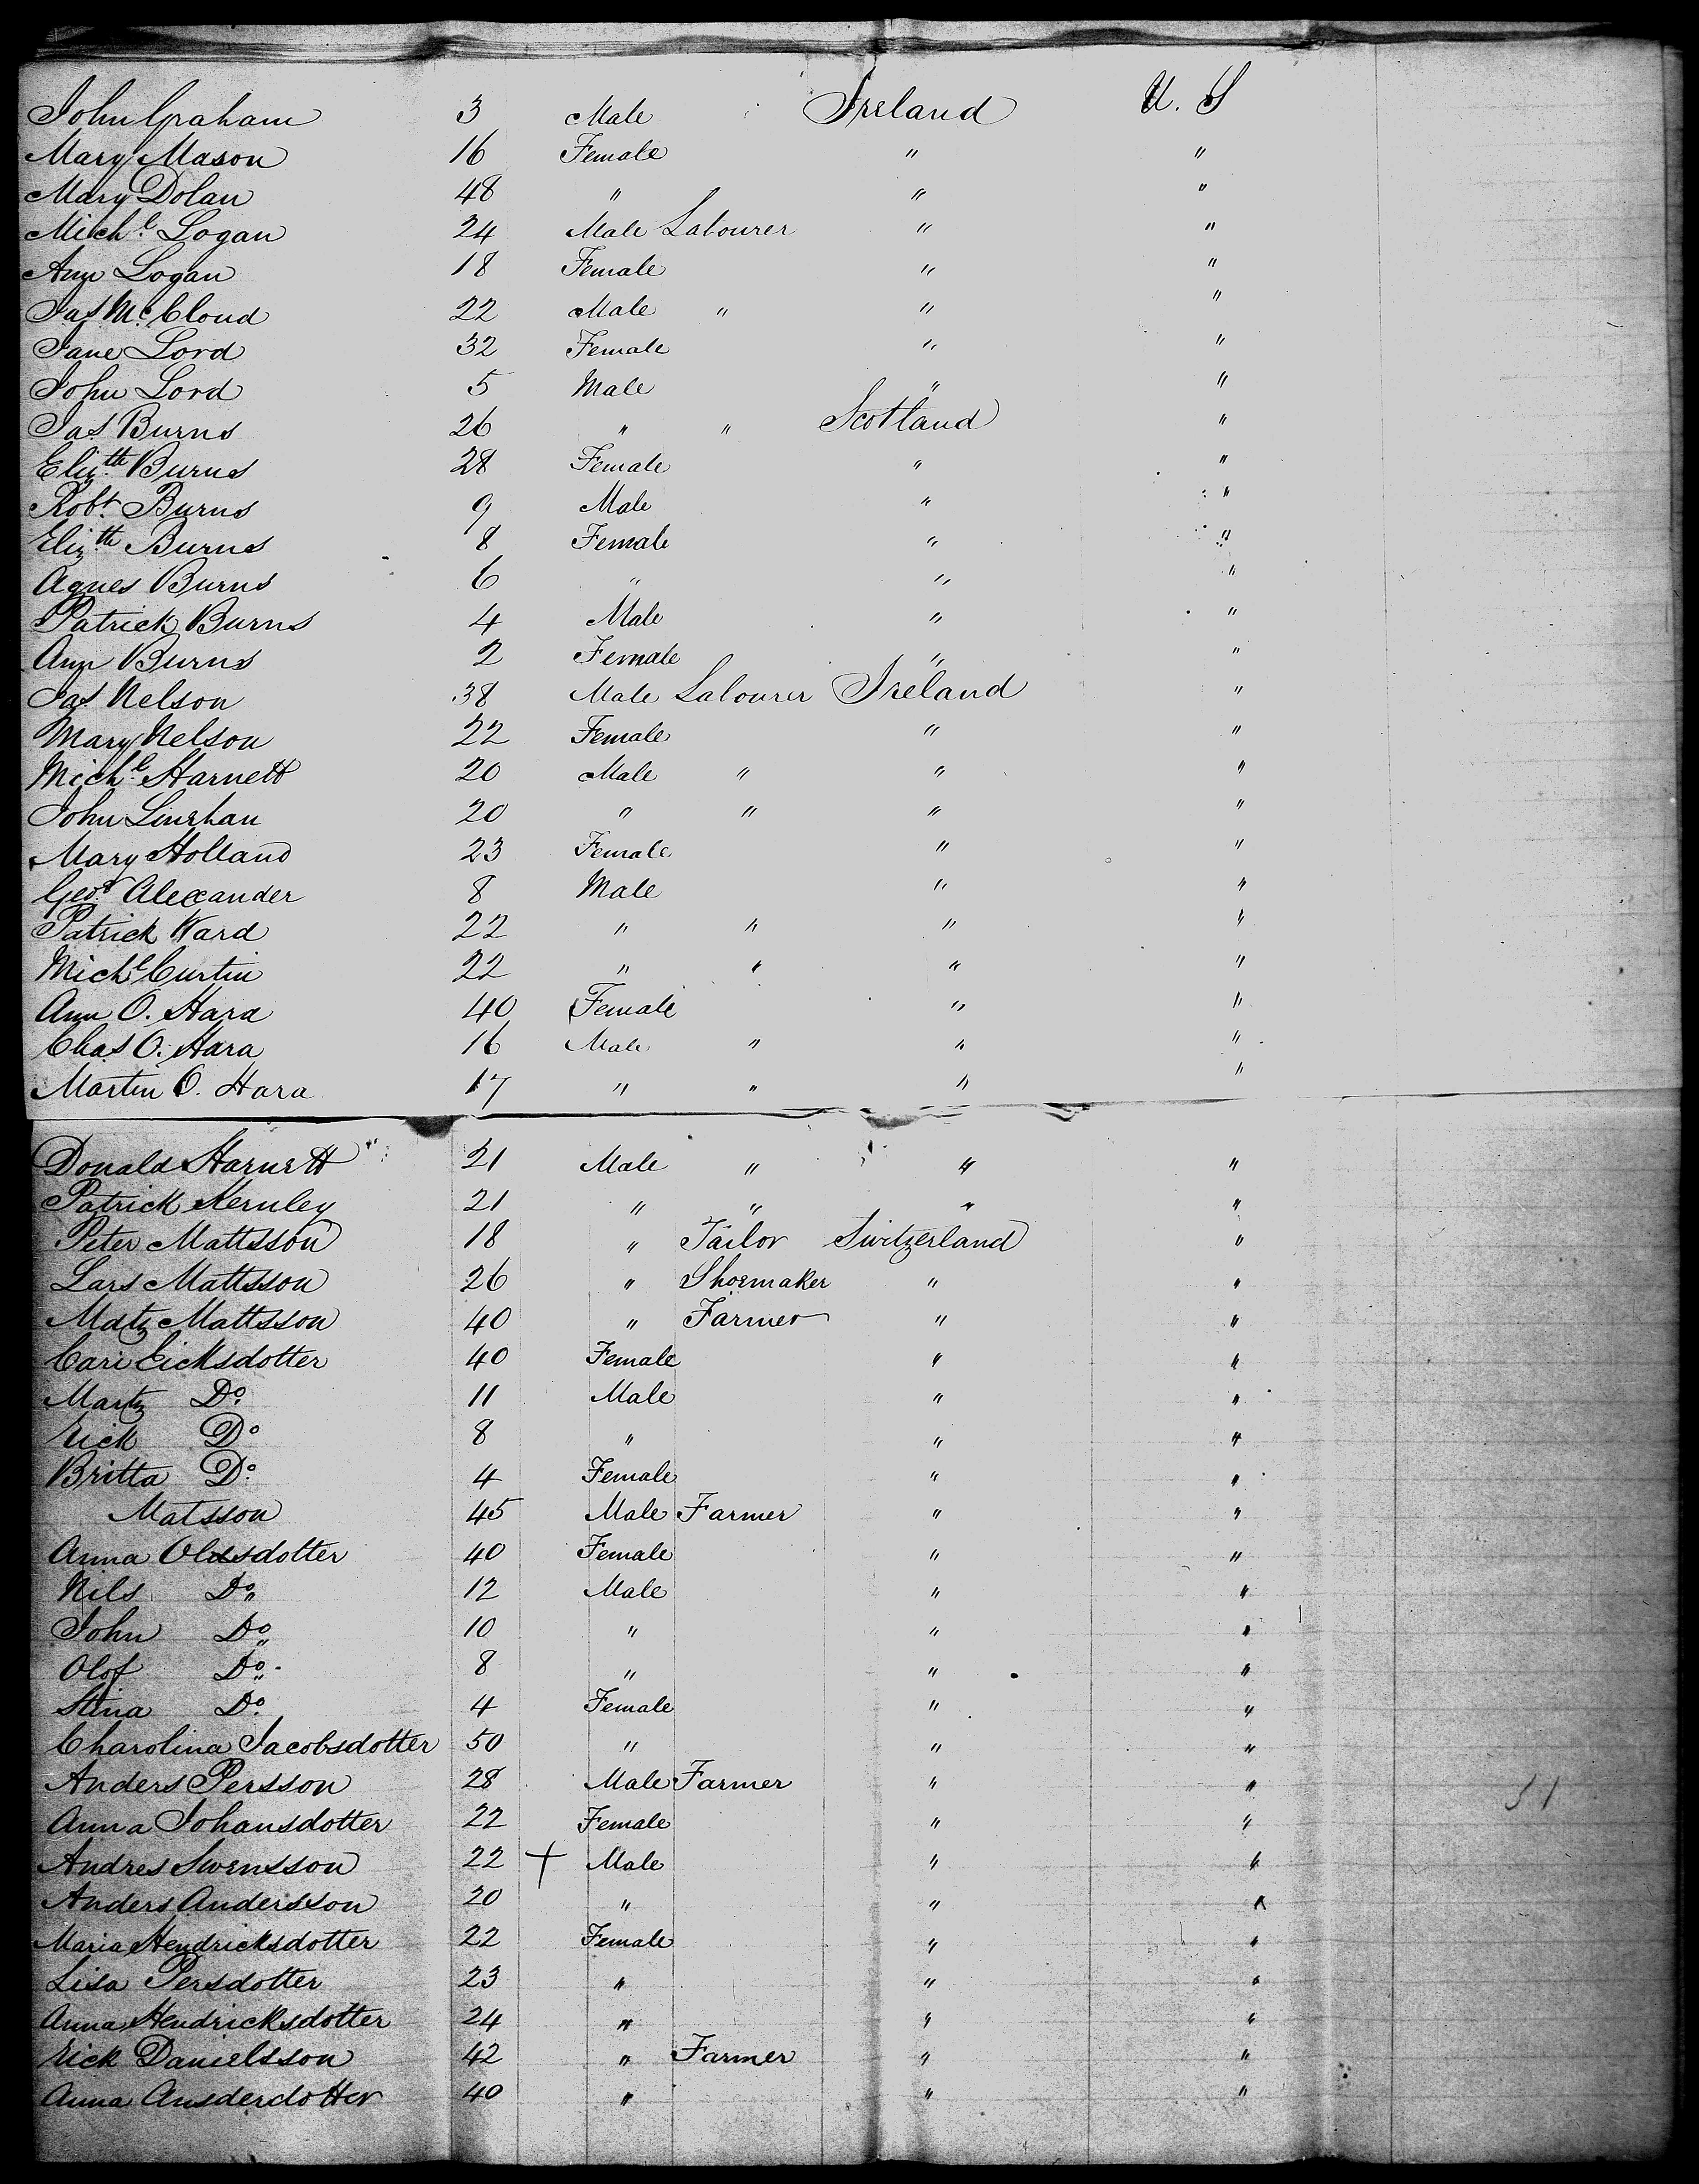 John Graham 3 Male Ireland U. S
Mary Mason 16 Female " "
Mary Dolan 48 " " "
Mich.l Logan 24 Male Labourer " "
Ann Logan 18 Female " "
Jas McCloud 22 Male " " "
Jane Lord 32 Female " "
John Lord 5 Male " "
Jas Burns 26 " " Scotland "
Eliz.th Burns 28 Female " "
Robt. Burns 9 Male " "
Eliz.th Burns 8 Female " "
Agnes Burns 6 " " "
Patrick Burns 4 Male " "
Ann Burns 2 Female " "
Jas Nelson 38 Male Labourer Ireland "
Mary Nelson 22 Female " "
Mich.l Harnett 20 Male " " "
John Linehan 20 " " " "
Mary Holland 23 Female " "
Geo. Alexander 8 Male " "
Patrick Ward 22 " " " "
Mich.l Curtin 22 " " " "
Ann O. Hara 40 Female " "
Chas O. Hara 16 Male " " "
Martin O. Hara 17 " " " "
Donald Harnett 21 Male " " "
Patrick Kernley 21 " " " "
Peter Mattsson 18 " Tailor Switzerland "
Lars Mattsson 26 " Shoemaker " "
Matz Mattsson 40 " Farmer " "
Cari Eicksdotter 40 Female " "
Martz Do. 11 Male " "
Eick Do 8 " " "
Britta Do. 4 Female " "
Matsson 45 Male Farmer " "
Anna Oldsdotter 40 Female " "
Nils Do 12 Male " "
John Do 10 " " "
Olof Do 8 " " "
Stina Do. 4 Female " "
Charolina Jacobsdotter 50 " " "
Anders Persson 28 Male Farmer " "
Anna Johansdotter 22 Female " "
Andres Swensson 22 + Male " "
Anders Andersson 20 " " "
Maria Hendricksdotter 22 Female " "
Lisa Persdotter 23 " " "
Anna Hendricksdotter 24 " " "
Eick Danielsson 42 " Farmer " "
Anna Ansderdotter 40 " " "
51